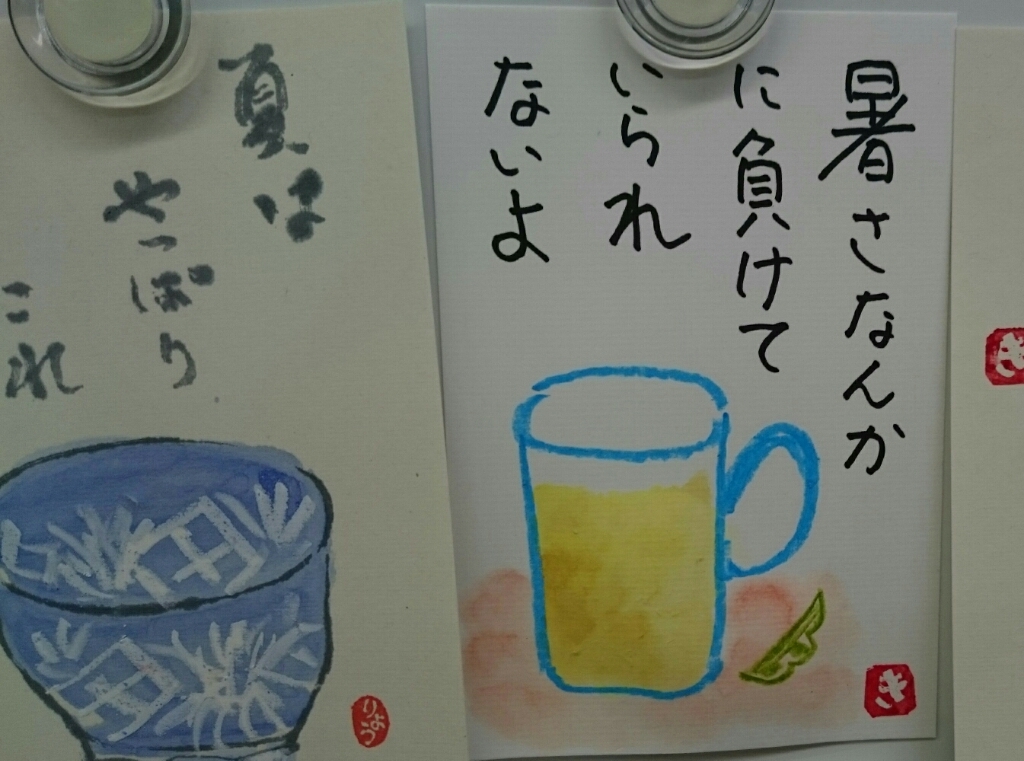 夏は
やっぱり
これ
りょう
暑さなんか
に負けて
いられ
ないよ
き
き